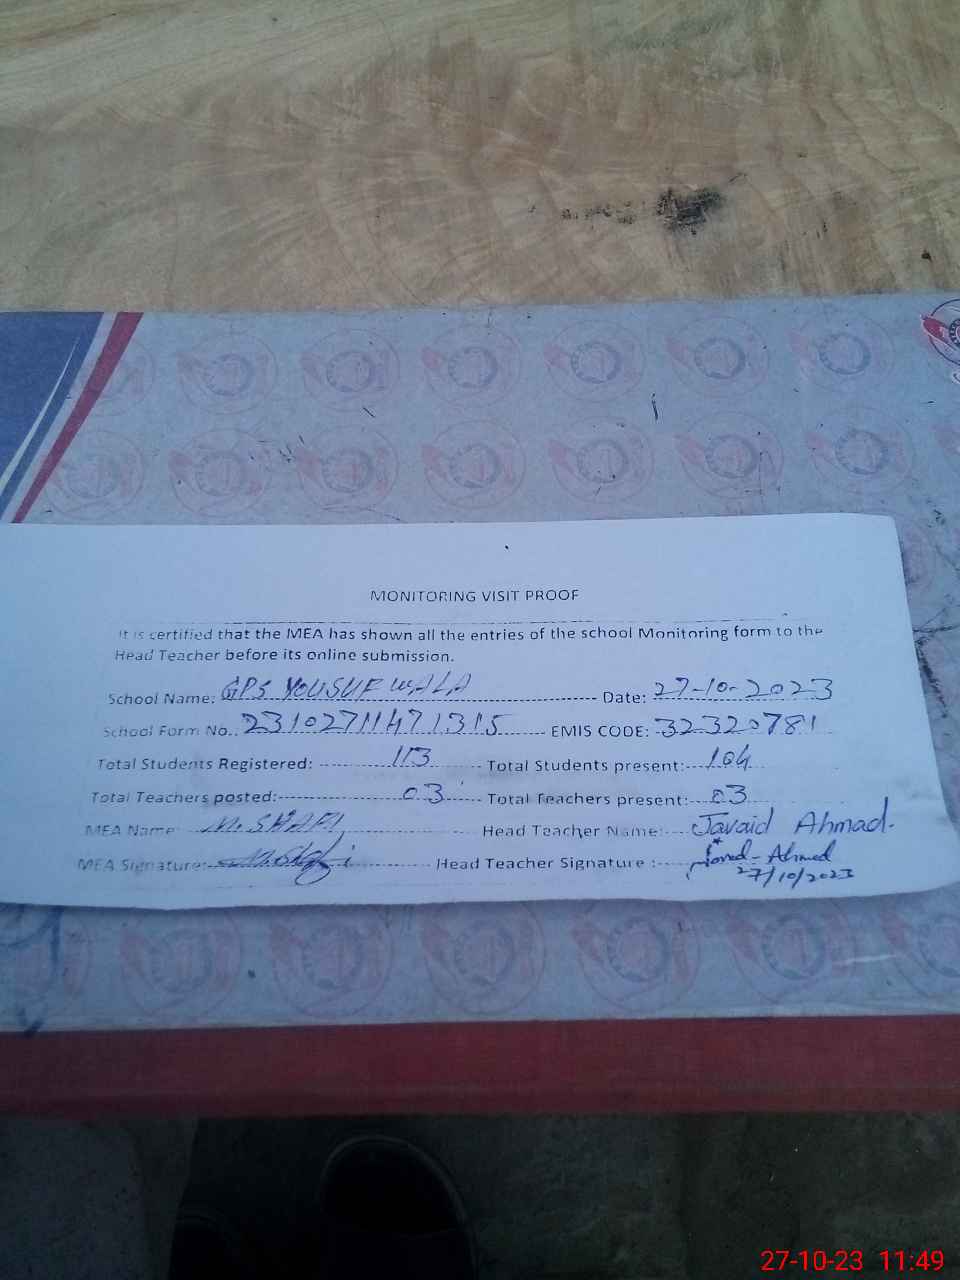 MONITORING VISIT PROOF
It is certified that the MEA has shown all the entries of the school Monitoring form to the
Head Teacher before its online submission.
School Name: GPS YOUSUF WALA Date: 27-10-2023
School Form No.. 23102711471315 EMIS CODE: 32320781
Total Students Registered: 113 Total Students present: 104
Total Teachers posted: 03 Total Teachers present: 03
MEA Name M. SHAFI Head Teacher Name: Javaid Ahmad.
MEA Signature: Head Teacher Signature : Javed-Ahmed
27/10/2023
27-10-23 11:49